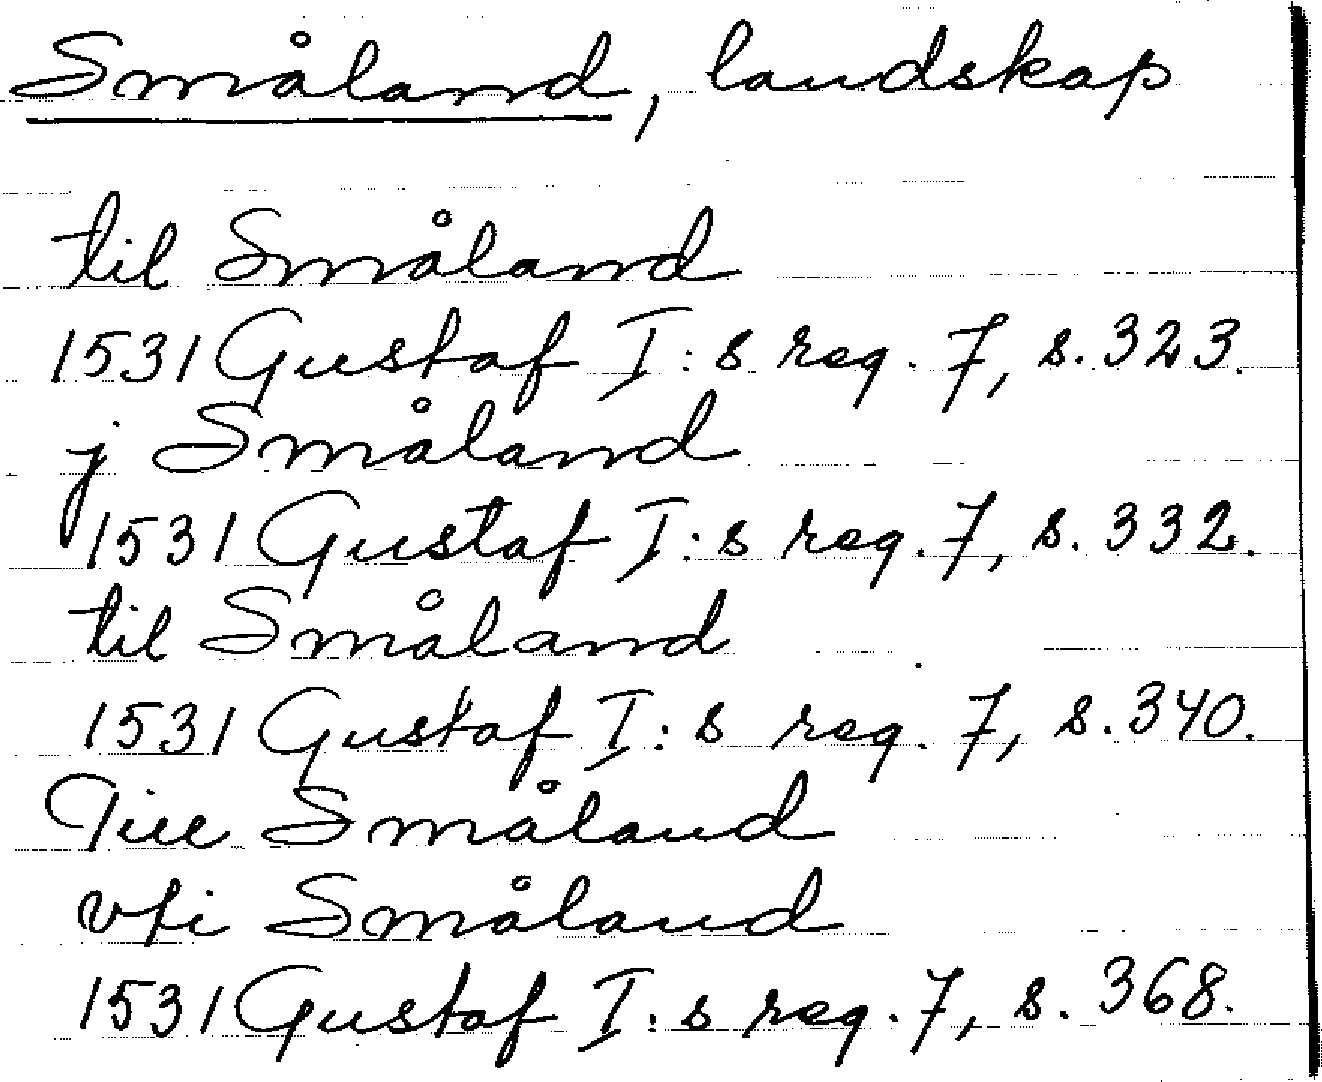 Småland, landskap
til Småland
1531 Gustaf I:s reg. 7, s. 323.
j Småland
1531 Gustaf I:s reg. 7, s. 332.
til Småland
1531 Gustaf I:s reg. 7, s. 340.
Till Småland
vpi Småland
1531 Gustaf I:s reg. 7, s. 368.